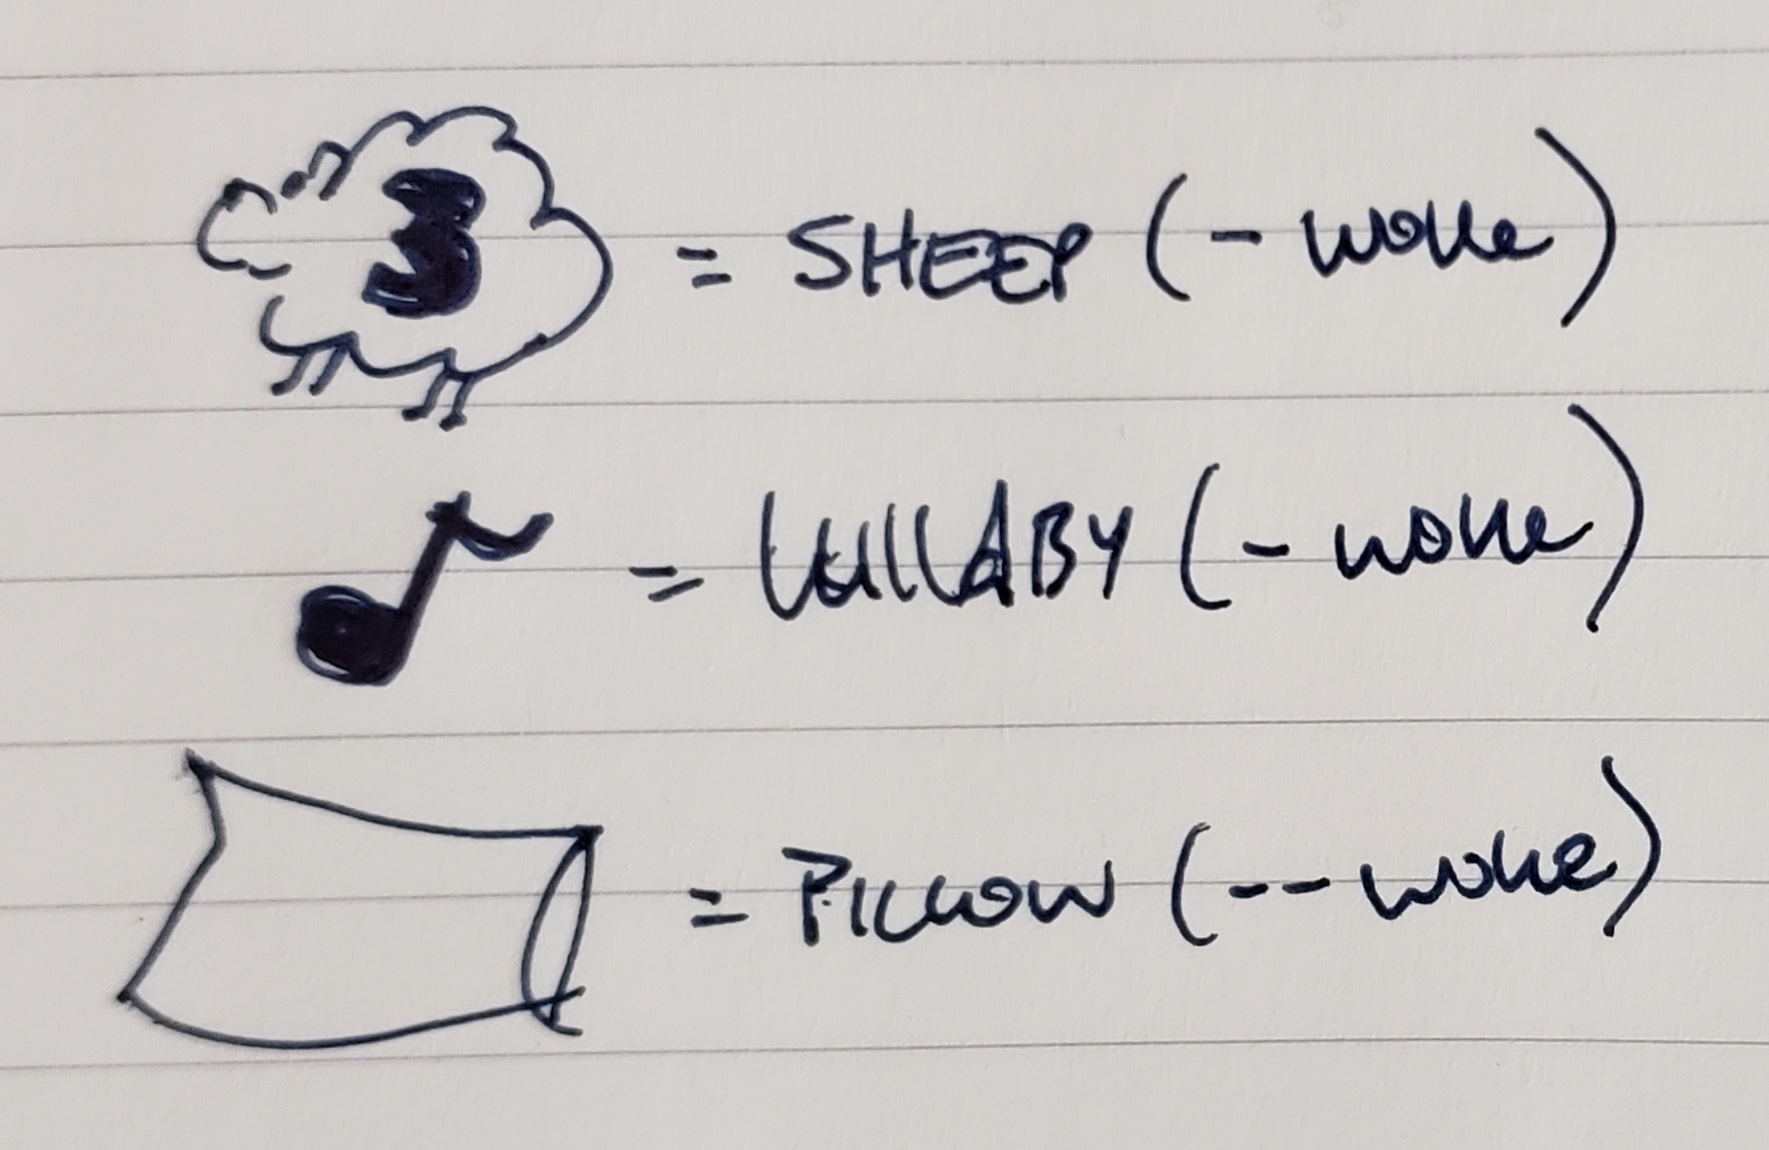 3 = SHEEP (- woke)
= LULLABY (- woke)
= PILLOW (-- woke)